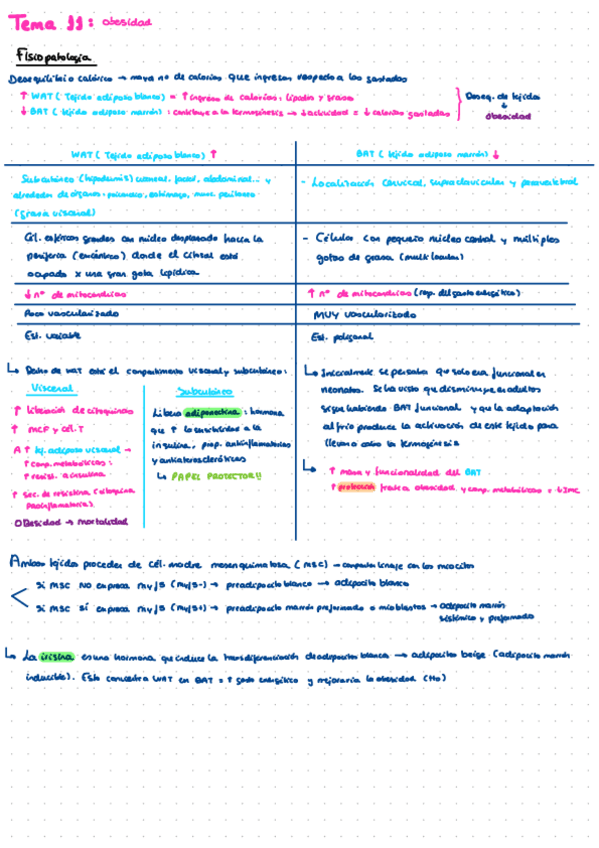 Tema 11: obesidad
Fisiopatología
Desequilibrio calórico → mayor nº de calorías que ingresan respecto a las gastadas
↑ WAT (Tejido adiposo blanco) = ↑ ingreso de calorías: lípidos y grasas
↓ BAT (tejido adiposo marrón): contribuye a la termogénesis → ↓ actividad = ↓ calorías gastadas
Deseq. de tejidos
↓
obesidad
WAT (Tejido adiposo blanco) ↑
BAT (tejido adiposo marrón) ↓
Subcutáneo (hipodermis) craneal, facial, abdominal... y
alrededor de órganos: epicardio, estómago, mes. peritoneo
(grasa visceral)
- Localización cervical, supraclavicular y paravertebral
Cél. esféricas grandes con núcleo desplazado hacia la
periferia (excéntrico) donde el citosol está
ocupado x una gran gota lipídica
- Células con pequeño núcleo central y múltiples
gotas de grasa (multilocular)
↓ nº de mitocondrias
↑ nº de mitocondrias (resp. del gasto energético)
Poco vascularizado
MUY vascularizado
Est. variable
Est. poligonal
↳ Dentro de WAT está el compartimento visceral y subcutáneo:
Visceral
↑ liberación de citoquinas
↑ MCF y cél. T
A ↑ tej. adiposo visceral →
↑ comp. metabólicas:
↑ resist. a insulina
↑ sec. de resistina (citoquina
proinflamatoria)
Obesidad → mortalidad
Subcutáneo
Libera adiponectina: hormona
que ↑ la sensibilidad a la
insulina, prop. antiinflamatorias
y antiateroscleróticas
↳ PAPEL PROTECTOR!!
↳ Inicialmente se pensaba que solo era funcional en
neonatos. Se ha visto que disminuye en adultos
sigue habiendo BAT funcional y que la adaptación
al frío produce la activación de este tejido para
llevar a cabo la termogénesis
↳ ↑ masa y funcionalidad del BAT
↑ protección frente a obesidad y comp. metabólicas = ↓ IMC
Ambos tejidos proceden de cél. madre mesenquimatosa (MSC) → comparten linaje con los miocitos
Si MSC NO expresa myf5 (myf5-) → preadipocito blanco → adipocito blanco
Si MSC SÍ expresa myf5 (myf5+) → preadipocito marrón preformado o mioblastos → adipocito marrón
sistémico y preformado
↳ La irisina es una hormona que induce la transdiferenciación de adipocitos blancos → adipocitos beige (adipocito marrón
inducible). Esto convertiría WAT en BAT = ↑ gasto energético y mejoraría la obesidad